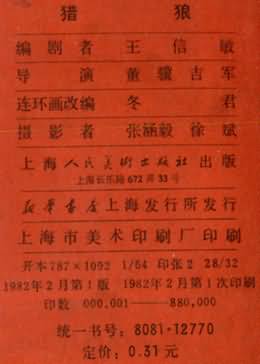 猎 狼
编剧者 王信敏
导演 董骥吉军
连环画改编 冬君
摄影者 张涵毅 徐斌
上海人民美术出版社出版
上海长乐路672弄33号
新华书店上海发行所发行
上海市美术印刷厂印刷
开本787×1092 1/64 印张2 28/32
1982年2月第1版 1982年2月第1次印刷
印数 000,001——880,000
统一书号:8081·12770
定价:0.31元